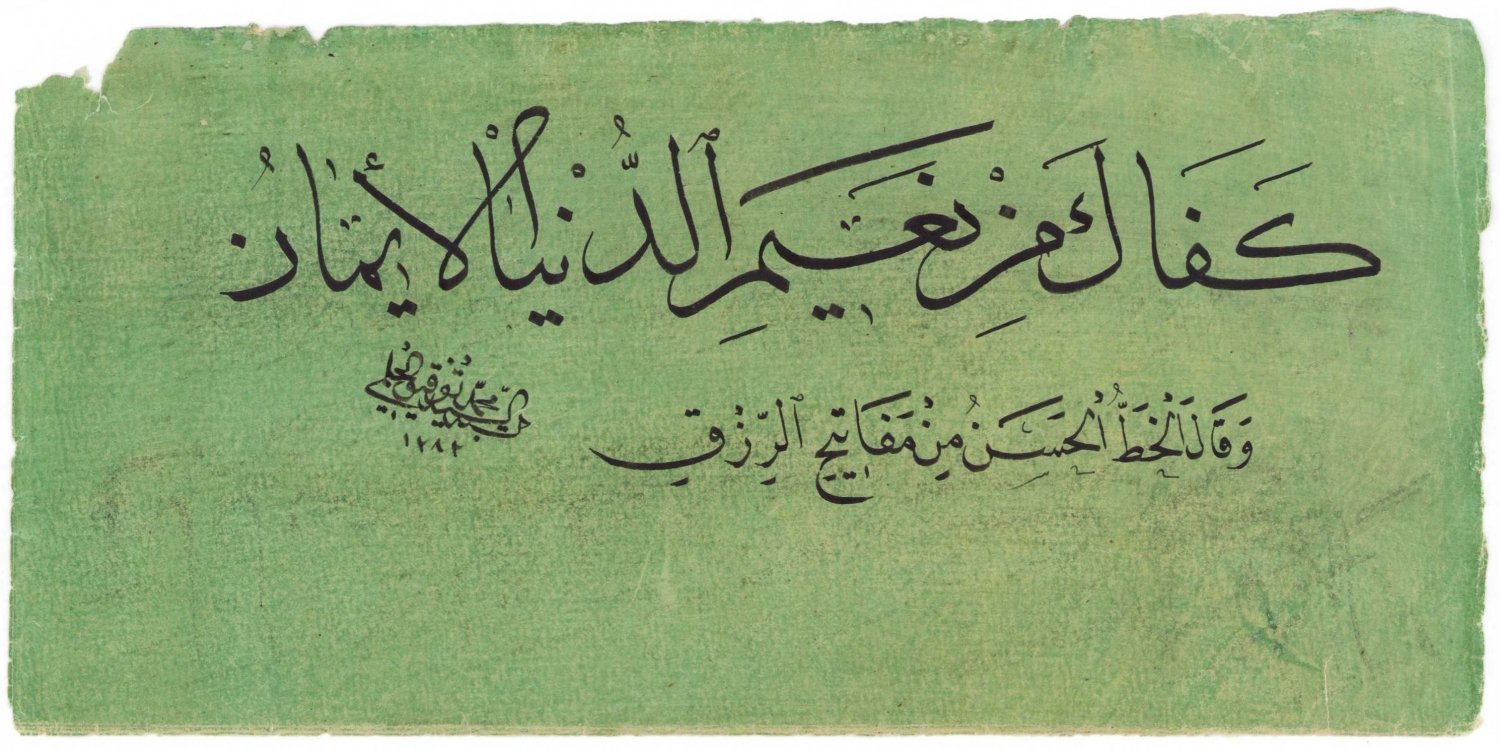 كَفَاكَ مِنْ نَعِيمِ ٱلدُّنْيَا الْأَيمَانُ
وَقَالَ الْخَطُّ الْحَسَنُ مِنْ مَفَاتِيحِ ٱلرِّزْقِ
السيد محمد توفيق الحلبي
١٢٨٢